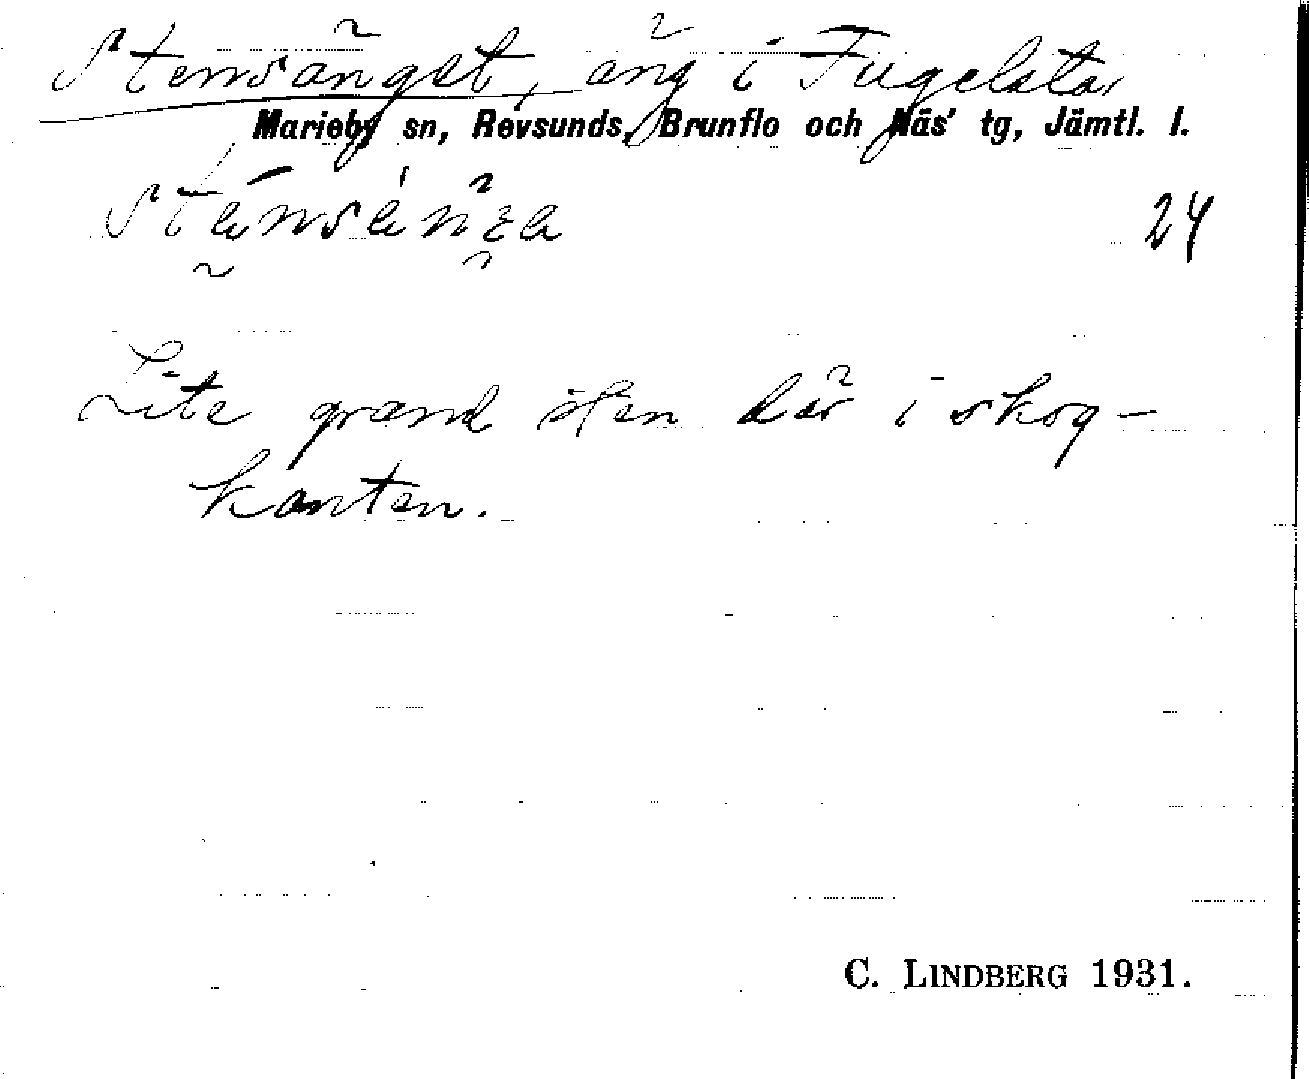 Stensängst, äng i Fugelsta,
Marieby sn, Revsunds, Brunflo och Näs' tg, Jämtl. l.
24
Lite grand sten där i skog-
kanten.
C. LINDBERG 1931.